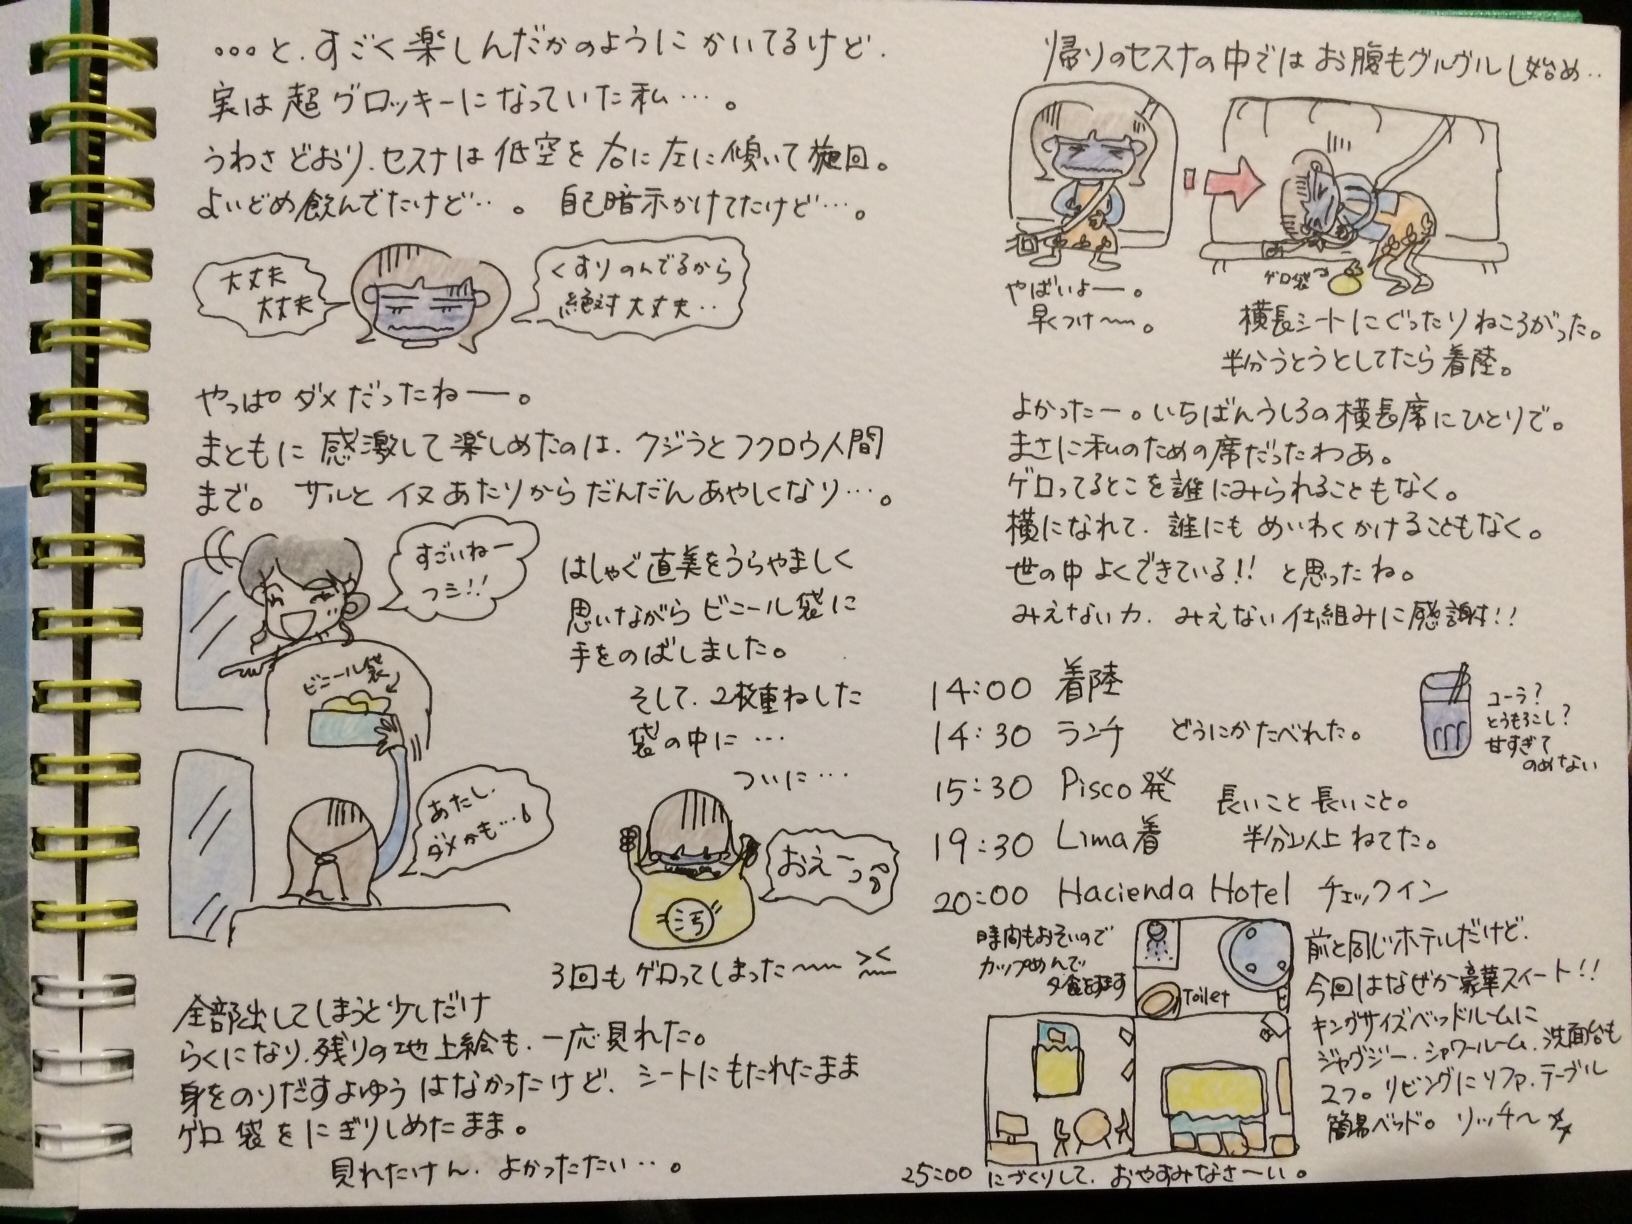 …と、すごく楽しんだかのようにかいてるけど、
実は超グロッキーになっていた私…。
うわさどおり、セスナは低空を右に左に傾いて旋回。
よいどめ飲んでたけど…。自己暗示かけてたけど…。
大丈夫
大丈夫
くすりのんでるから
絶対大丈夫…
やっぱダメだったねー。
まともに感激して楽しめたのは、クジラとフクロウ人間
まで。サルとイヌあたりからだんだんあやしくなり…。
すごいねー
フミ!!
ビニール袋
はしゃぐ直美をうらやましく
思いながらビニール袋に
手をのばしました。
そして、2枚重ねした
袋の中に…
ついに…
あたし、
ダメかも…。
おえーっ
汚
3回もゲロってしまった〜〜
全部出してしまうと少しだけ
らくになり、残りの地上絵も、一応見れた。
身をのりだすよゆうはなかったけど、シートにもたれたまま
ゲロ袋をにぎりしめたまま。
見れたけん、よかったたい…。
帰りのセスナの中ではお腹もグルグルし始め…
やばいよー。
早くつけ〜。
ゲロ袋
横長シートにぐったりねころがった。
半分うとうとしてたら着陸。
よかったー。いちばんうしろの横長席にひとりで。
まさに私のための席だったわあ。
ゲロってるとこを誰にみられることもなく。
横になれて、誰にもめいわくかけることもなく。
世の中よくできている!!と思ったね。
みえない力、みえない仕組みに感謝!!
14:00 着陸
14:30 ランチ どうにかたべれた。
コーラ?
とうもろこし?
甘すぎて
のめない
15:30 Pisco発
長いこと長いこと。
19:30 Lima着
半分以上ねてた。
20:00 Hacienda Hotel チェックイン
時間もおそいので
カップめんで
夕食をすます
Toilet
前と同じホテルだけど、
今回はなぜか豪華スイート!!
キングサイズベッドルームに
ジャグジー、シャワールーム、洗面台も
2つ。リビングにソファ、テーブル
簡易ベッド。リッチ〜
25:00 にづくりして、おやすみなさ〜い。